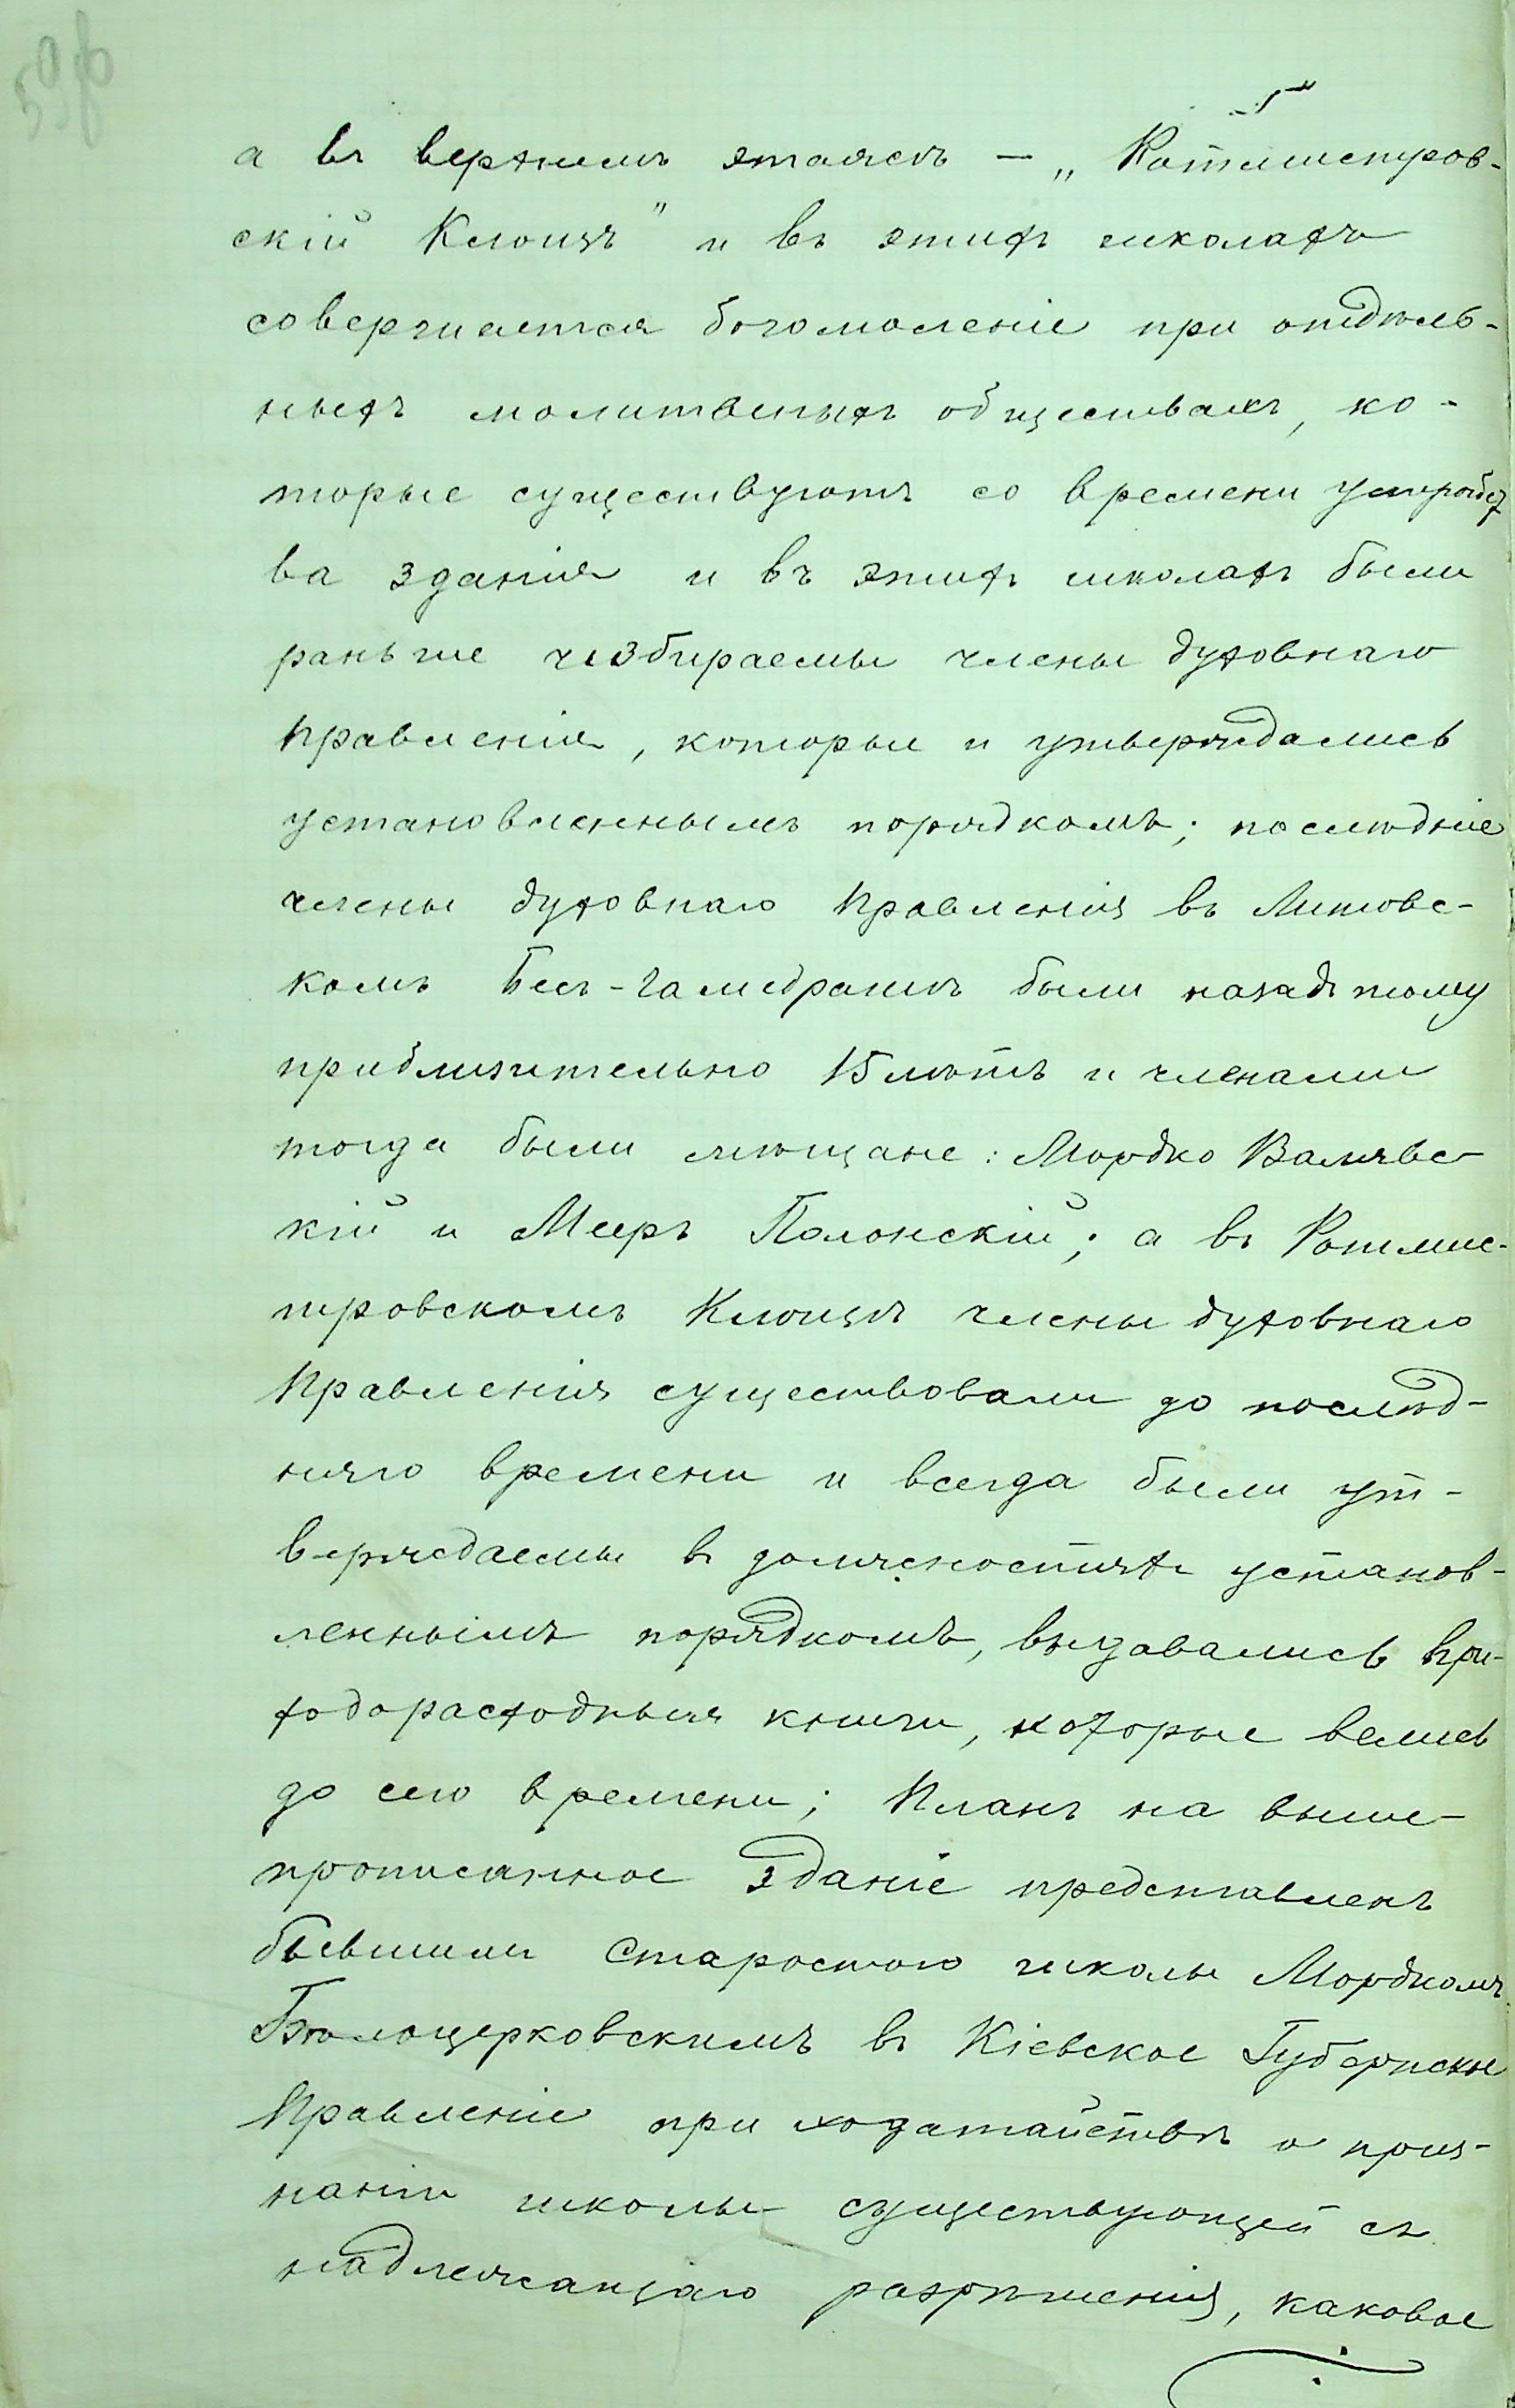 а въ верхнемъ этажѣ — „Ротмистров-
скій Клоизъ" и въ этихъ школахъ
совершается богомоленіе при отдѣль-
ныхъ молитвенныхъ обществахъ, ко-
торые существуютъ со времени устройст
ва зданія и въ этихъ школахъ были
раньше избираемы члены духовнаго
Правленія, которые и утверждались
установленнымъ порядкомъ; послѣдніе
члены духовнаго Правленія въ Литовс-
комъ Бес-гамедрашѣ были назадъ тому
приблизительно 15 лѣтъ и членами
тогда были мѣщане: Мордко Валявс-
кій и Мееръ Полонскій; а въ Ротмис-
тровскомъ Клоизѣ члены духовнаго
Правленія существовали до послѣд-
няго времени и всегда были ут-
верждаемы въ должностяхъ установ-
леннымъ порядкомъ, выдавались при-
ходорасходныя книги, которые велись
до сего времени; Планъ на выше-
прописанное зданіе представленъ
бывшимъ Старостою школы Мордкомъ
Бѣлоцерковскимъ въ Кіевское Губернское
Правленіе при ходатайствѣ о приз-
наніи школы существующей съ
надлежащаго разрѣшенія, каковое